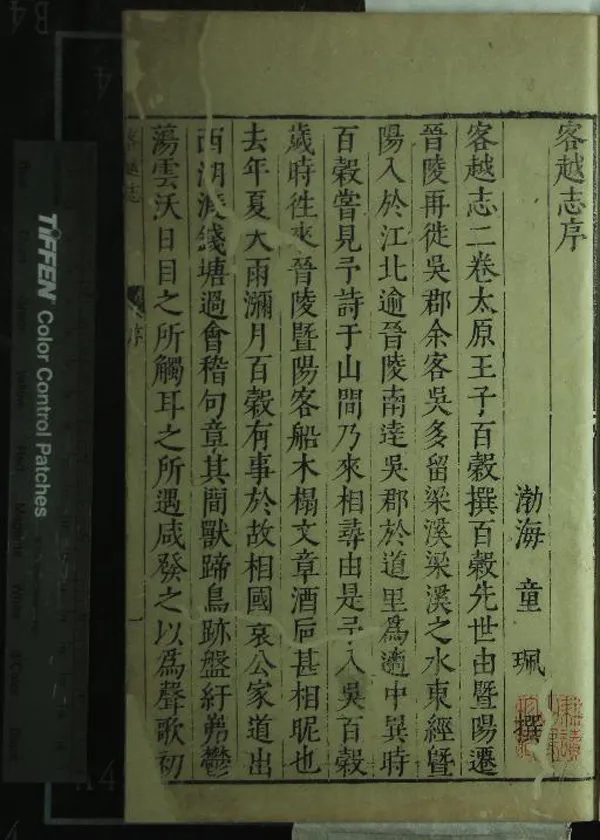 客越志序
渤海童珮撰
客越志二卷太原王子百穀撰百穀先世由暨陽遷
晉陵再徙吳郡余客吳多留梁溪梁溪之水東經暨
陽入於江北逾晉陵南逹吳郡於道里爲適中異時
百穀嘗見予詩于山間乃來相尋由是予入吳百穀
歲時徃來晉陵暨陽客船木榻文章酒巵甚相昵也
去年夏大雨瀰月百穀有事於故相國袁公家道出
西湖渡錢塘過會稽句章其間獸蹄鳥跡盤紆岪鬱
蕩雲沃日目之所觸耳之所遇咸發之以爲聲歌初
客越志
序
一
TIFFEN Color Control Patches